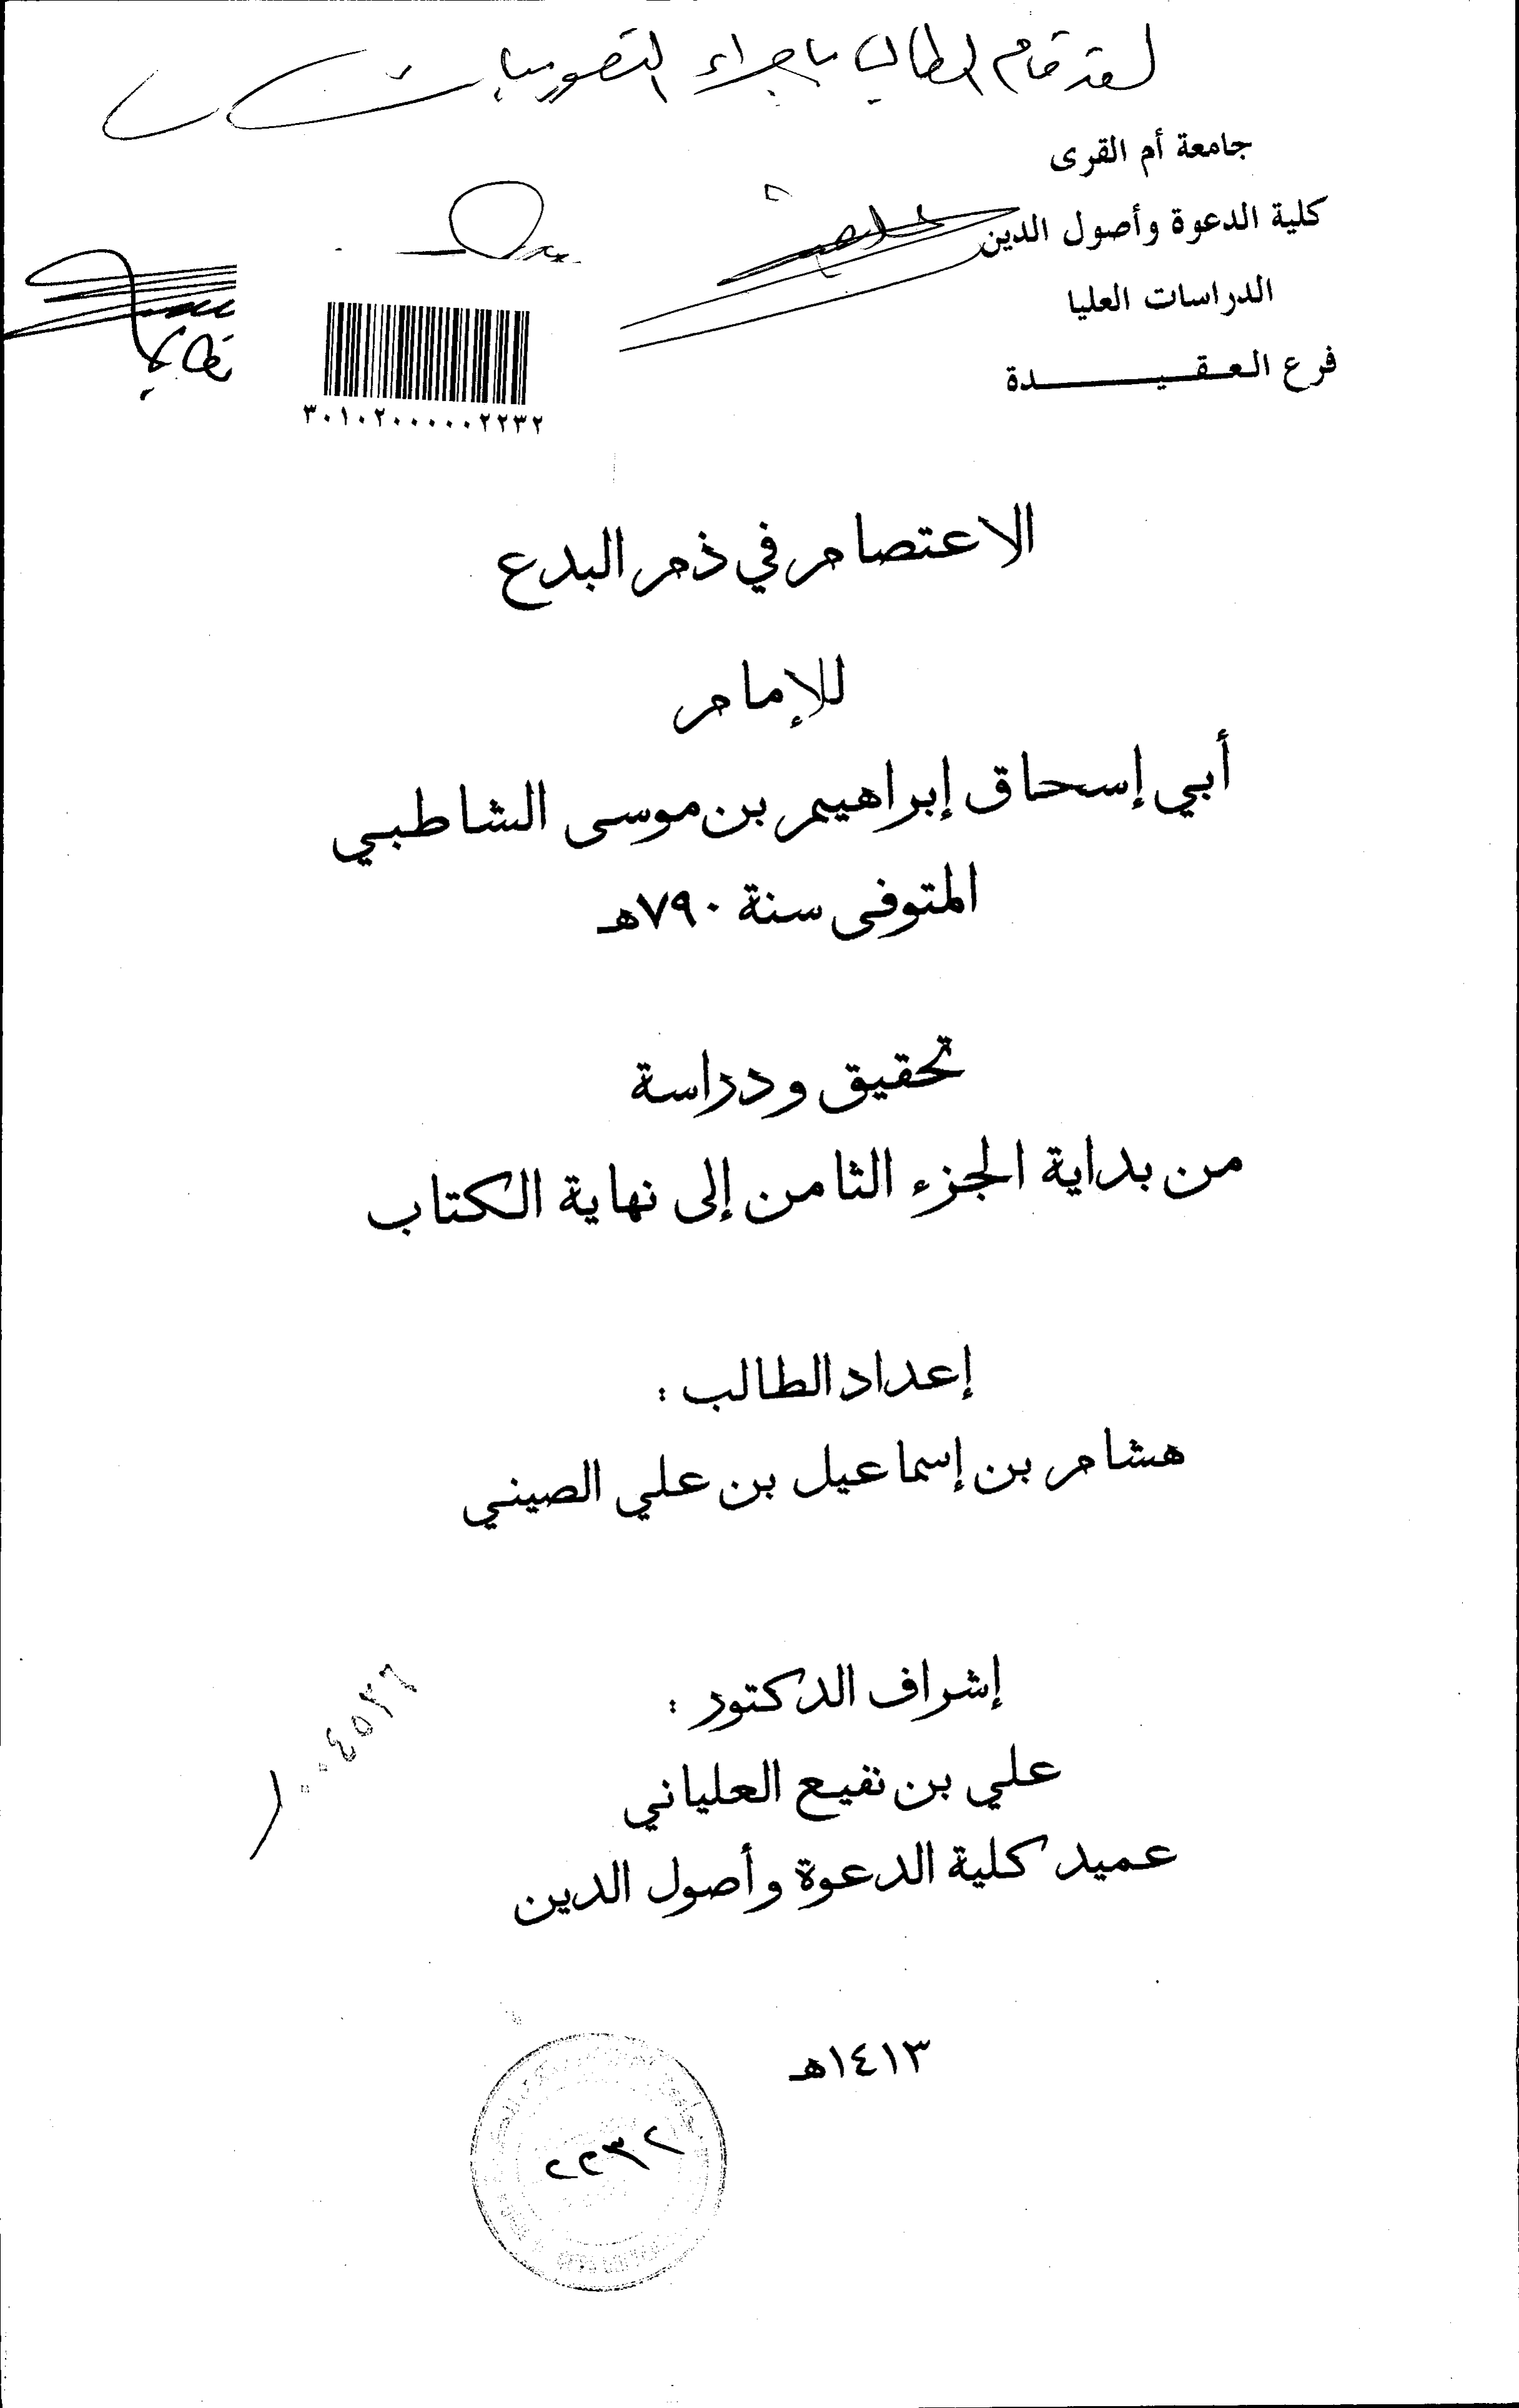 لقد قام الطالب بإجراء التصويبات
جامعة أم القرى
كلية الدعوة وأصول الدين
الدراسات العليا
فرع العقيدة
٣٠١٠٢٠٠٠٠٠٢٢٣٢
الاعتصام في ذم البدع
للإمام
أبي إسحاق إبراهيم بن موسى الشاطبي
المتوفى سنة ٧٩٠هـ
تحقيق ودراسة
من بداية الجزء الثامن إلى نهاية الكتاب
إعداد الطالب :
هشام بن إسماعيل بن علي الصيني
إشراف الدكتور :
علي بن نفيع العلياني
عميد كلية الدعوة وأصول الدين
١٤١٣هـ
٢٢٣٢